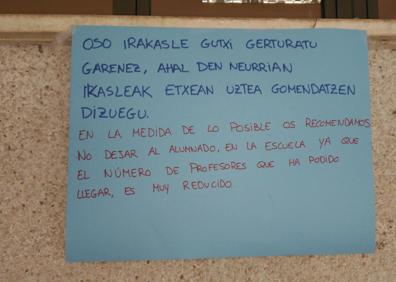 OSO IRAKASLE GUTXI GERTURATU
GARENEZ, AHAL DEN NEURRIAN
IKASLEAK ETXEAN UZTEA GOMENDATZEN
DIZUEGU.
EN LA MEDIDA DE LO POSIBLE OS RECOMENDAMOS
NO DEJAR AL ALUMNADO, EN LA ESCUELA YA QUE
EL NÚMERO DE PROFESORES QUE HA PODIDO
LLEGAR, ES MUY REDUCIDO